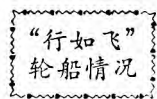 “行如飞”
轮船情况